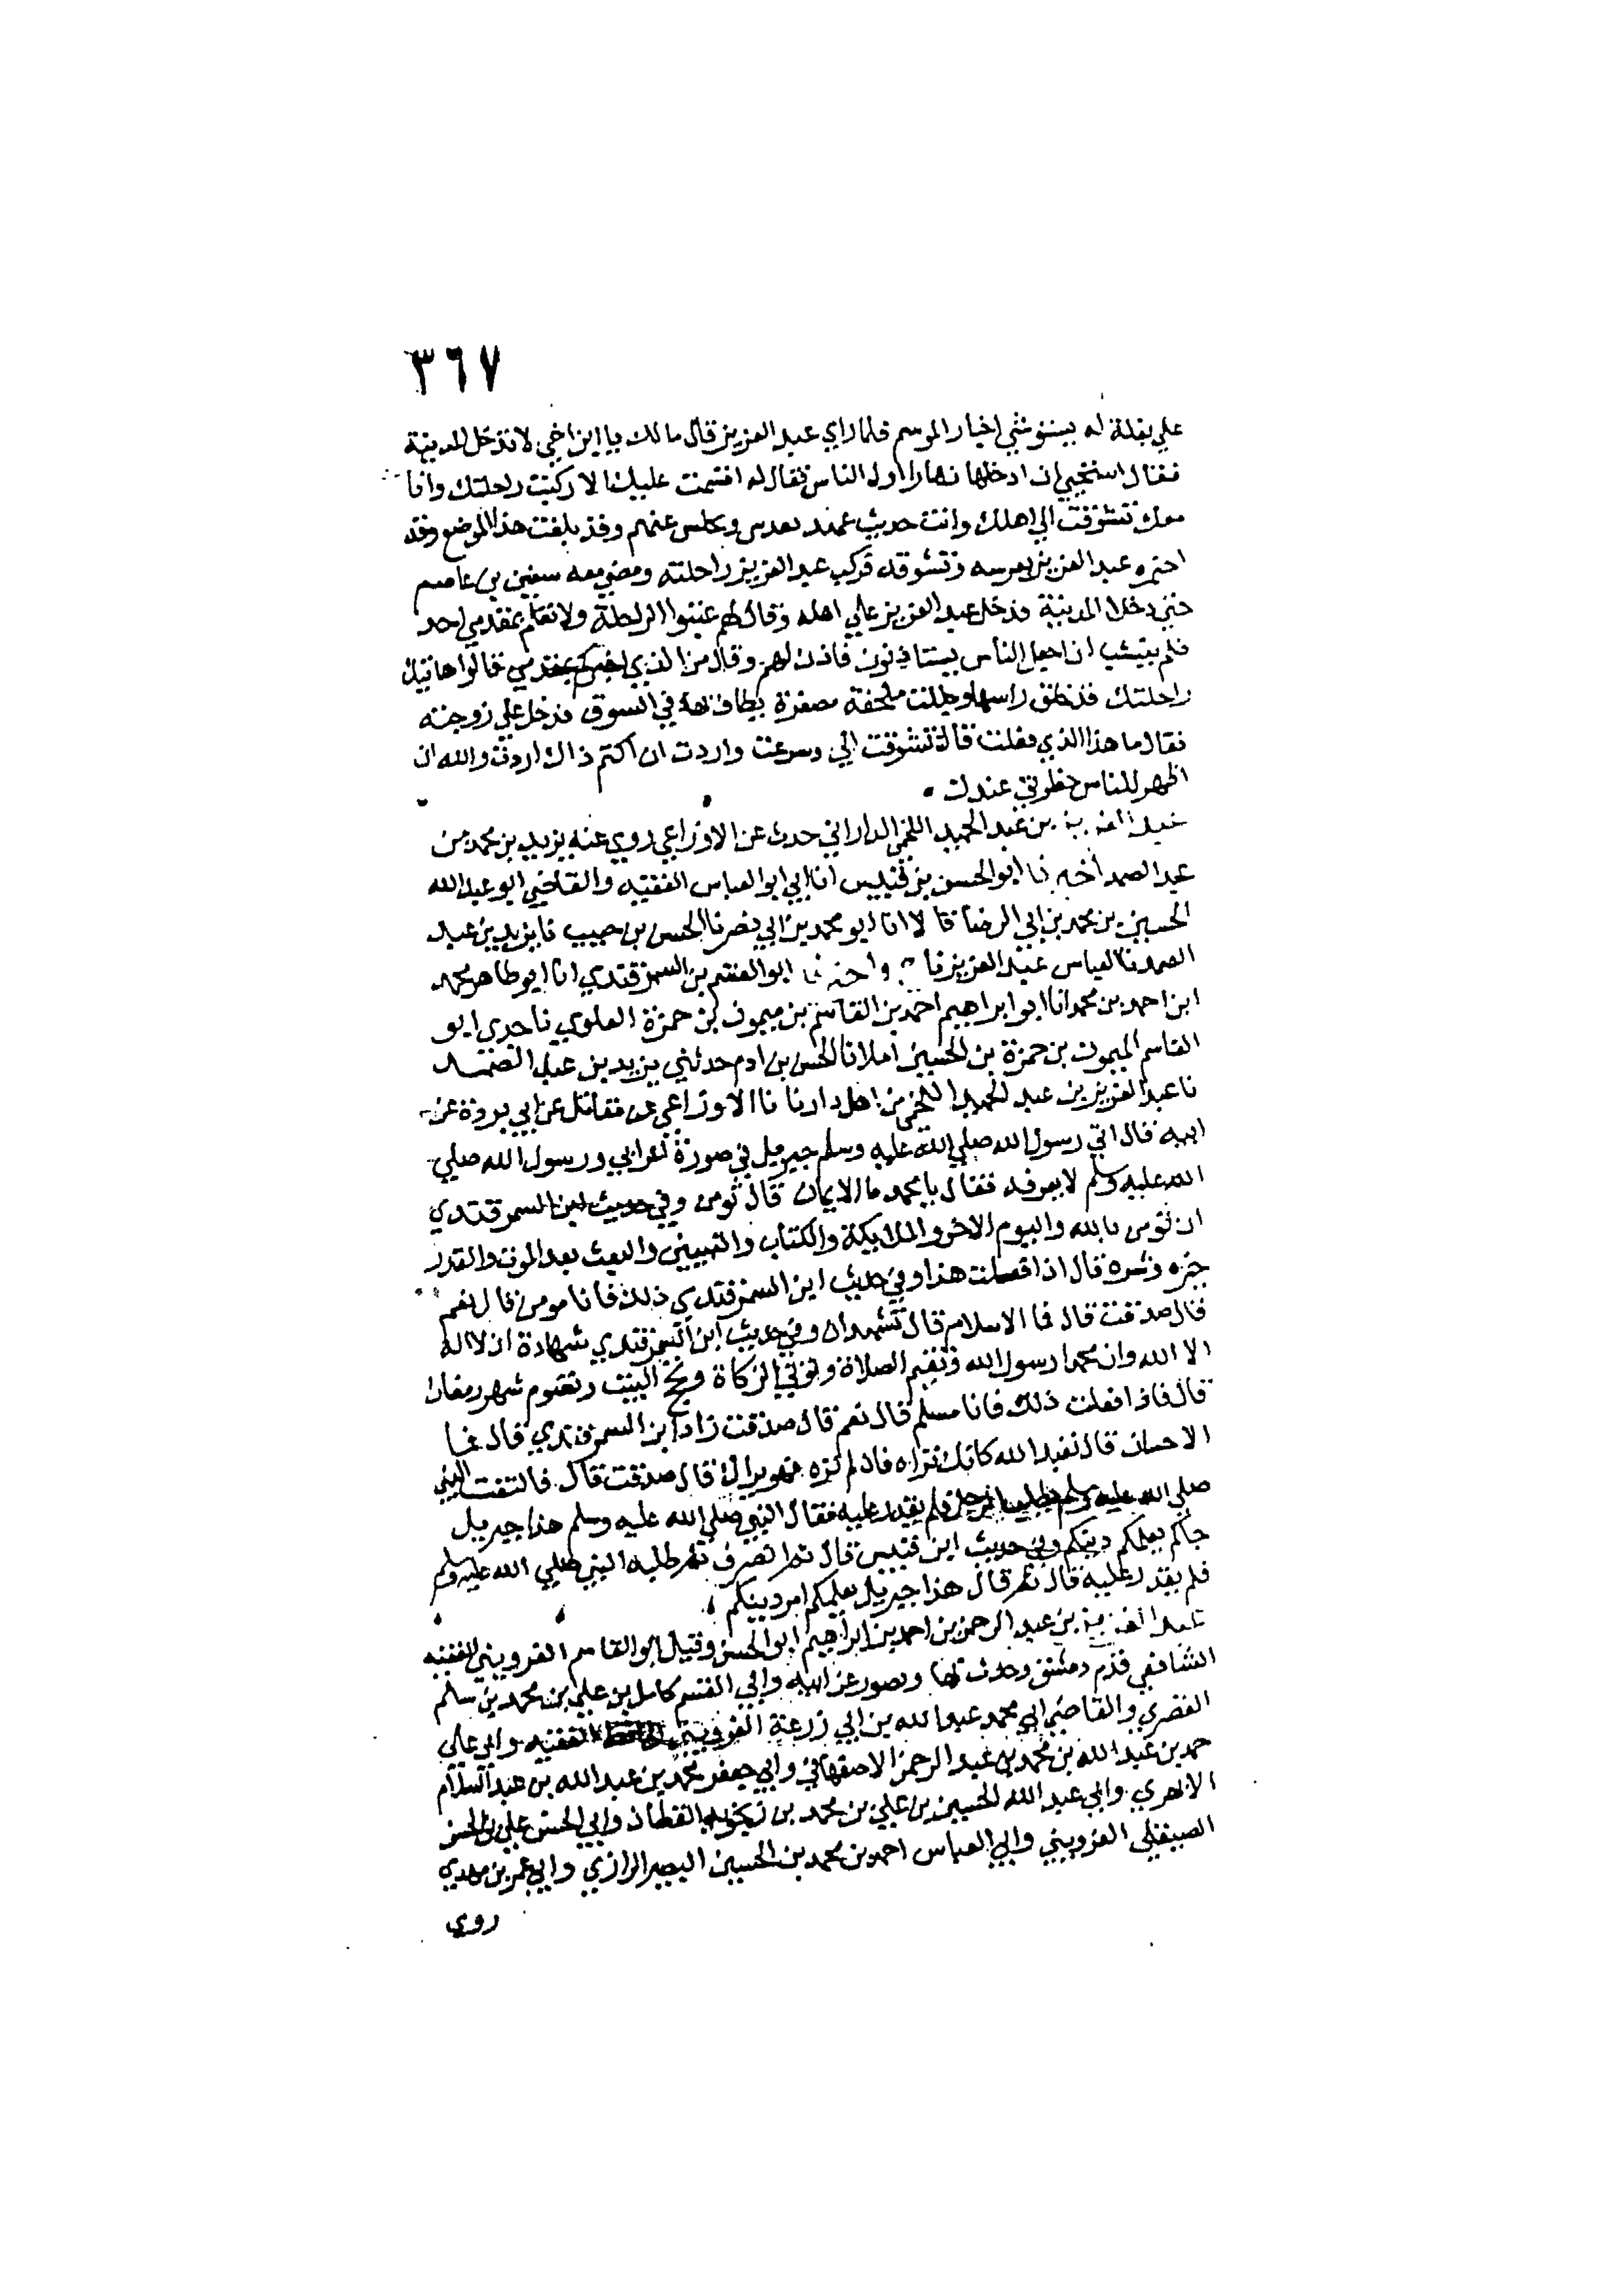 ٣٦٧
علي بغلة له يستوشي اخبار الموسم فلما راي عبد العزيز قال مالك يا ابن اخي لا تدخل المدينة
فقال استحيي ان ادخلها نهارا اول الناس فقال له اقسمت عليك الا ركبت راحلتك وانا
معك تشوقت الي اهلك وانت حديث عهد بعرس عنهم وقد بلغت هذا الموضع وقد
عبد العزيز بعرسه وتشوقه فركب عبد العزيز راحلته ومضي معه سفين بن عاصم
حتي دخلا المدينة فدخل عبد العزيز علي اهله وقال لهم غيبوا الراحلة ولا تعلم بمقدمي احد
فلم ينشب ان اجعل الناس يستاذنون فاذن لهم وقال من الذي اخبركم بمقدمي فقالوا هاتيك
راحلتك قد خلق راسها وجللت ملحفة مصفرة يطاف بها في السوق فدخل علي زوجته
فقال ما هذا الذي فعلت قالت تشوقت الي وسرعت واردت ان اكتم ذاك اردت والله ان
اظهر للناس حظوتي عندك
عبد العزيز بن عبد الحميد اللخمي الداراني حدث عن الاوزاعي روي عنه يزيد بن محمد بن
عبد الصمد اخبرنا ابو الحسن بن قبيس انا ابي ابو العباس الفقيه والقاضي ابو عبد الله
الحسين بن محمد بن ابي الرضا قالا انا ابو محمد بن ابي نصر نا الحسن بن حبيب نا يزيد بن عبد
الصمد نا العباس عبد العزيز نا واخبرنا ابو القسم بن السمرقندي انا ابو طاهر محمد
ابن احمد بن محمد انا ابو ابراهيم احمد بن القاسم بن ميمون بن حمزة العلوي نا جدي ابو
القاسم الميمون بن حمزة بن الحسين املا نا الحسن بن ادم حدثني يزيد بن عبد الصمد
نا عبد العزيز بن عبد الحميد اللخمي من اهل داريا نا الاوزاعي عن مقاتل عن ابي بردة عن
ابيه قال اتي رسول الله صلي الله عليه وسلم جبرييل في صورة اعرابي ورسول الله صلي
الله عليه وسلم لا يعرفه فقال يا محمد ما الايمان قال تومن وفي حديث ابن السمرقندي
ان تومن بالله واليوم الاخر والملايكة والكتاب والنبيين والبعث بعد الموت والقدر
خيره وشره قال اذا فعلت هذا وفي حديث ابن السمرقندي ذلك فانا مومن قال نعم
قال صدقت قال فما الاسلام قال تشهد ان وفي حديث ابن السمرقندي شهادة ان لا اله
الا الله وان محمدا رسول الله وتقيم الصلاة وتوتي الزكاة وتحج البيت وتصوم شهر رمضان
قال فاذا فعلت ذلك فانا مسلم قال نعم قال صدقت زاد ابن السمرقندي قال فما
الاحسان قال تعبد الله كانك تراه فان لم تره فهو يراك قال صدقت قال فالتفت النبي
صلي الله عليه وسلم يطلب الرجل فلم يقدر عليه فقال النبي صلي الله عليه وسلم هذا جبرييل
جاكم يعلمكم دينكم وفي حديث ابن قبيس قال ثم انصرف ثم طلبه النبي صلي الله عليه وسلم
فلم يقدر عليه قال ثم قال هذا جبريل يعلمكم امر دينكم
عبد العزيز بن عبد الرحمن بن احمد بن ابراهيم ابو الحسن وقيل ابو القاسم القزويني الفقيه
الشافعي قدم دمشق وحدث بها وبصور عن ابيه وابي القسم كامل بن علي بن محمد بن سلم
والقاضي ابي محمد عبد الله بن ابي زرعة القزويني الفقيه وابي علي
حمد بن عبد الله بن محمد بن عبد الرحمن الاصفهاني وابي جعفر محمد بن عبد الله بن عبد السلام
الابهري وابي عبد الله الحسين بن علي بن محمد بن القطان وابي الحسن علي بن الحسن
الصيقلي القزويني وابي العباس احمد بن محمد بن الحسين البصير الرازي وابي عمر بن مهدي
روي